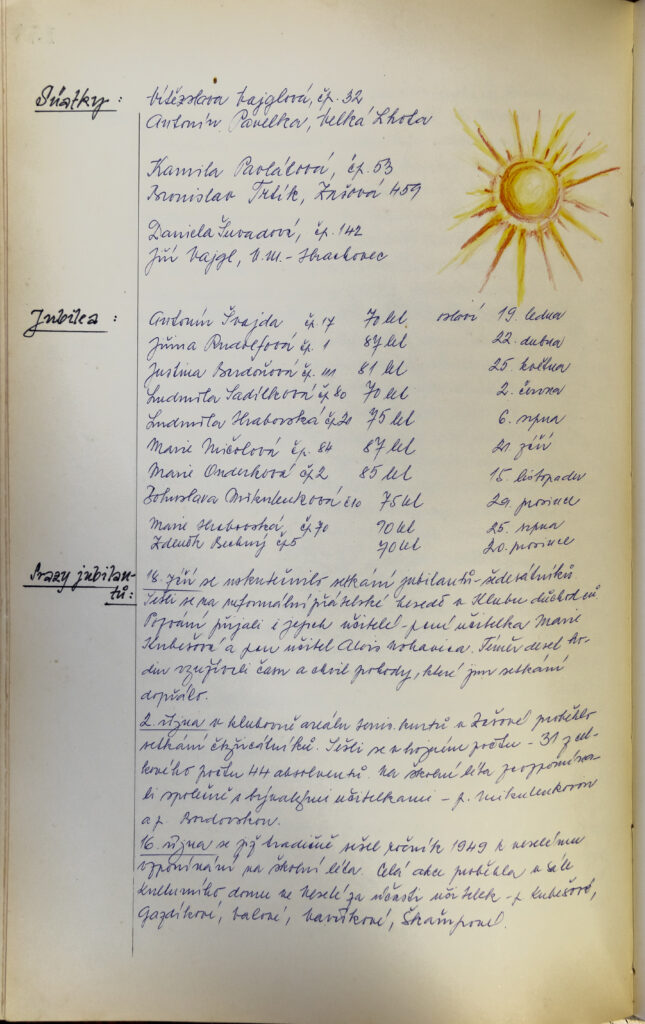 Sňatky : Vítězslava Vajglová, čp. 32
Antonín Pavelka, Velká Lhota
Kamila Pavlátová, čp. 53
Bronislav Trlík, Zašová 459
Daniela Šuvadová, čp. 142
Jiří Vajgl, V.M. - Hrachovec
Jubilea : Antonín Švajda čp. 17 70 let oslaví 19. ledna
Jiřina Rudolfová č. 1 87 let 22. dubna
Justina čp. 111 81 let 25. května
Ludmila Sadílková čp. 80 70 let 2. června
Ludmila Hrabovská čp. 20 75 let 6. srpna
Marie Mičolová čp. 84 87 let 21 září
Marie Onderková čp. 2 85 let 15. listopadu
Bohuslava Mikulenková č 10 75 let 29. prosince
Marie Hrabovská, čp. 70 90 let 25. srpna
Zdeněk čp 5 70 let 20. prosince
Srazy jubilan- 18. září se uskutečnilo setkání jubilantů - šedesátníků.
tů : Sešli se na neformální přátelské besedě v Klubu důchodců
Pozvání přijeli i jejich učitelé - paní učitelka Marie
Kubešová a pan učitel Alois Téměř deset ho-
din využívali času a chvil pohody, které jim setkání
dopřálo.
2. října v klubovně areálu tenis. kurtů v Zašové proběhlo
setkání čtyřicátníků. Sešli se v hojném počtu - 31 z cel-
kového počtu 44 absolventů. Na školní léta zavzpomína-
li společně s bývalými učitelkami - p. Mikulenkovou
a p. Bordovskou.
16. října se již tradičně sešel ročník 1949 k veselému
vzpomínání na školní léta. Celá akce proběhla v sále
kulturního domu na Veselé za účasti učitelek - p Kubešové,
Gazdíkové, Valové, Vavříkové, Škařupové.